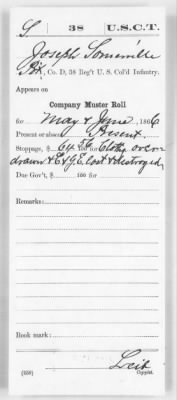 S 38 U.S.C.T.
Joseph Somerville
Pvt., Co. D, 38 Reg't U. S. Col'd Infantry.
Appears on
Company Muster Roll
for May & June, 1866
Present or absent Present.
Stoppage, $ 64 76/100 for Clothg over
drawn & C&G.E. lost & destroyed
Due Gov't, $ /100 for
Remarks:
Book mark:
(358)
Copyist.